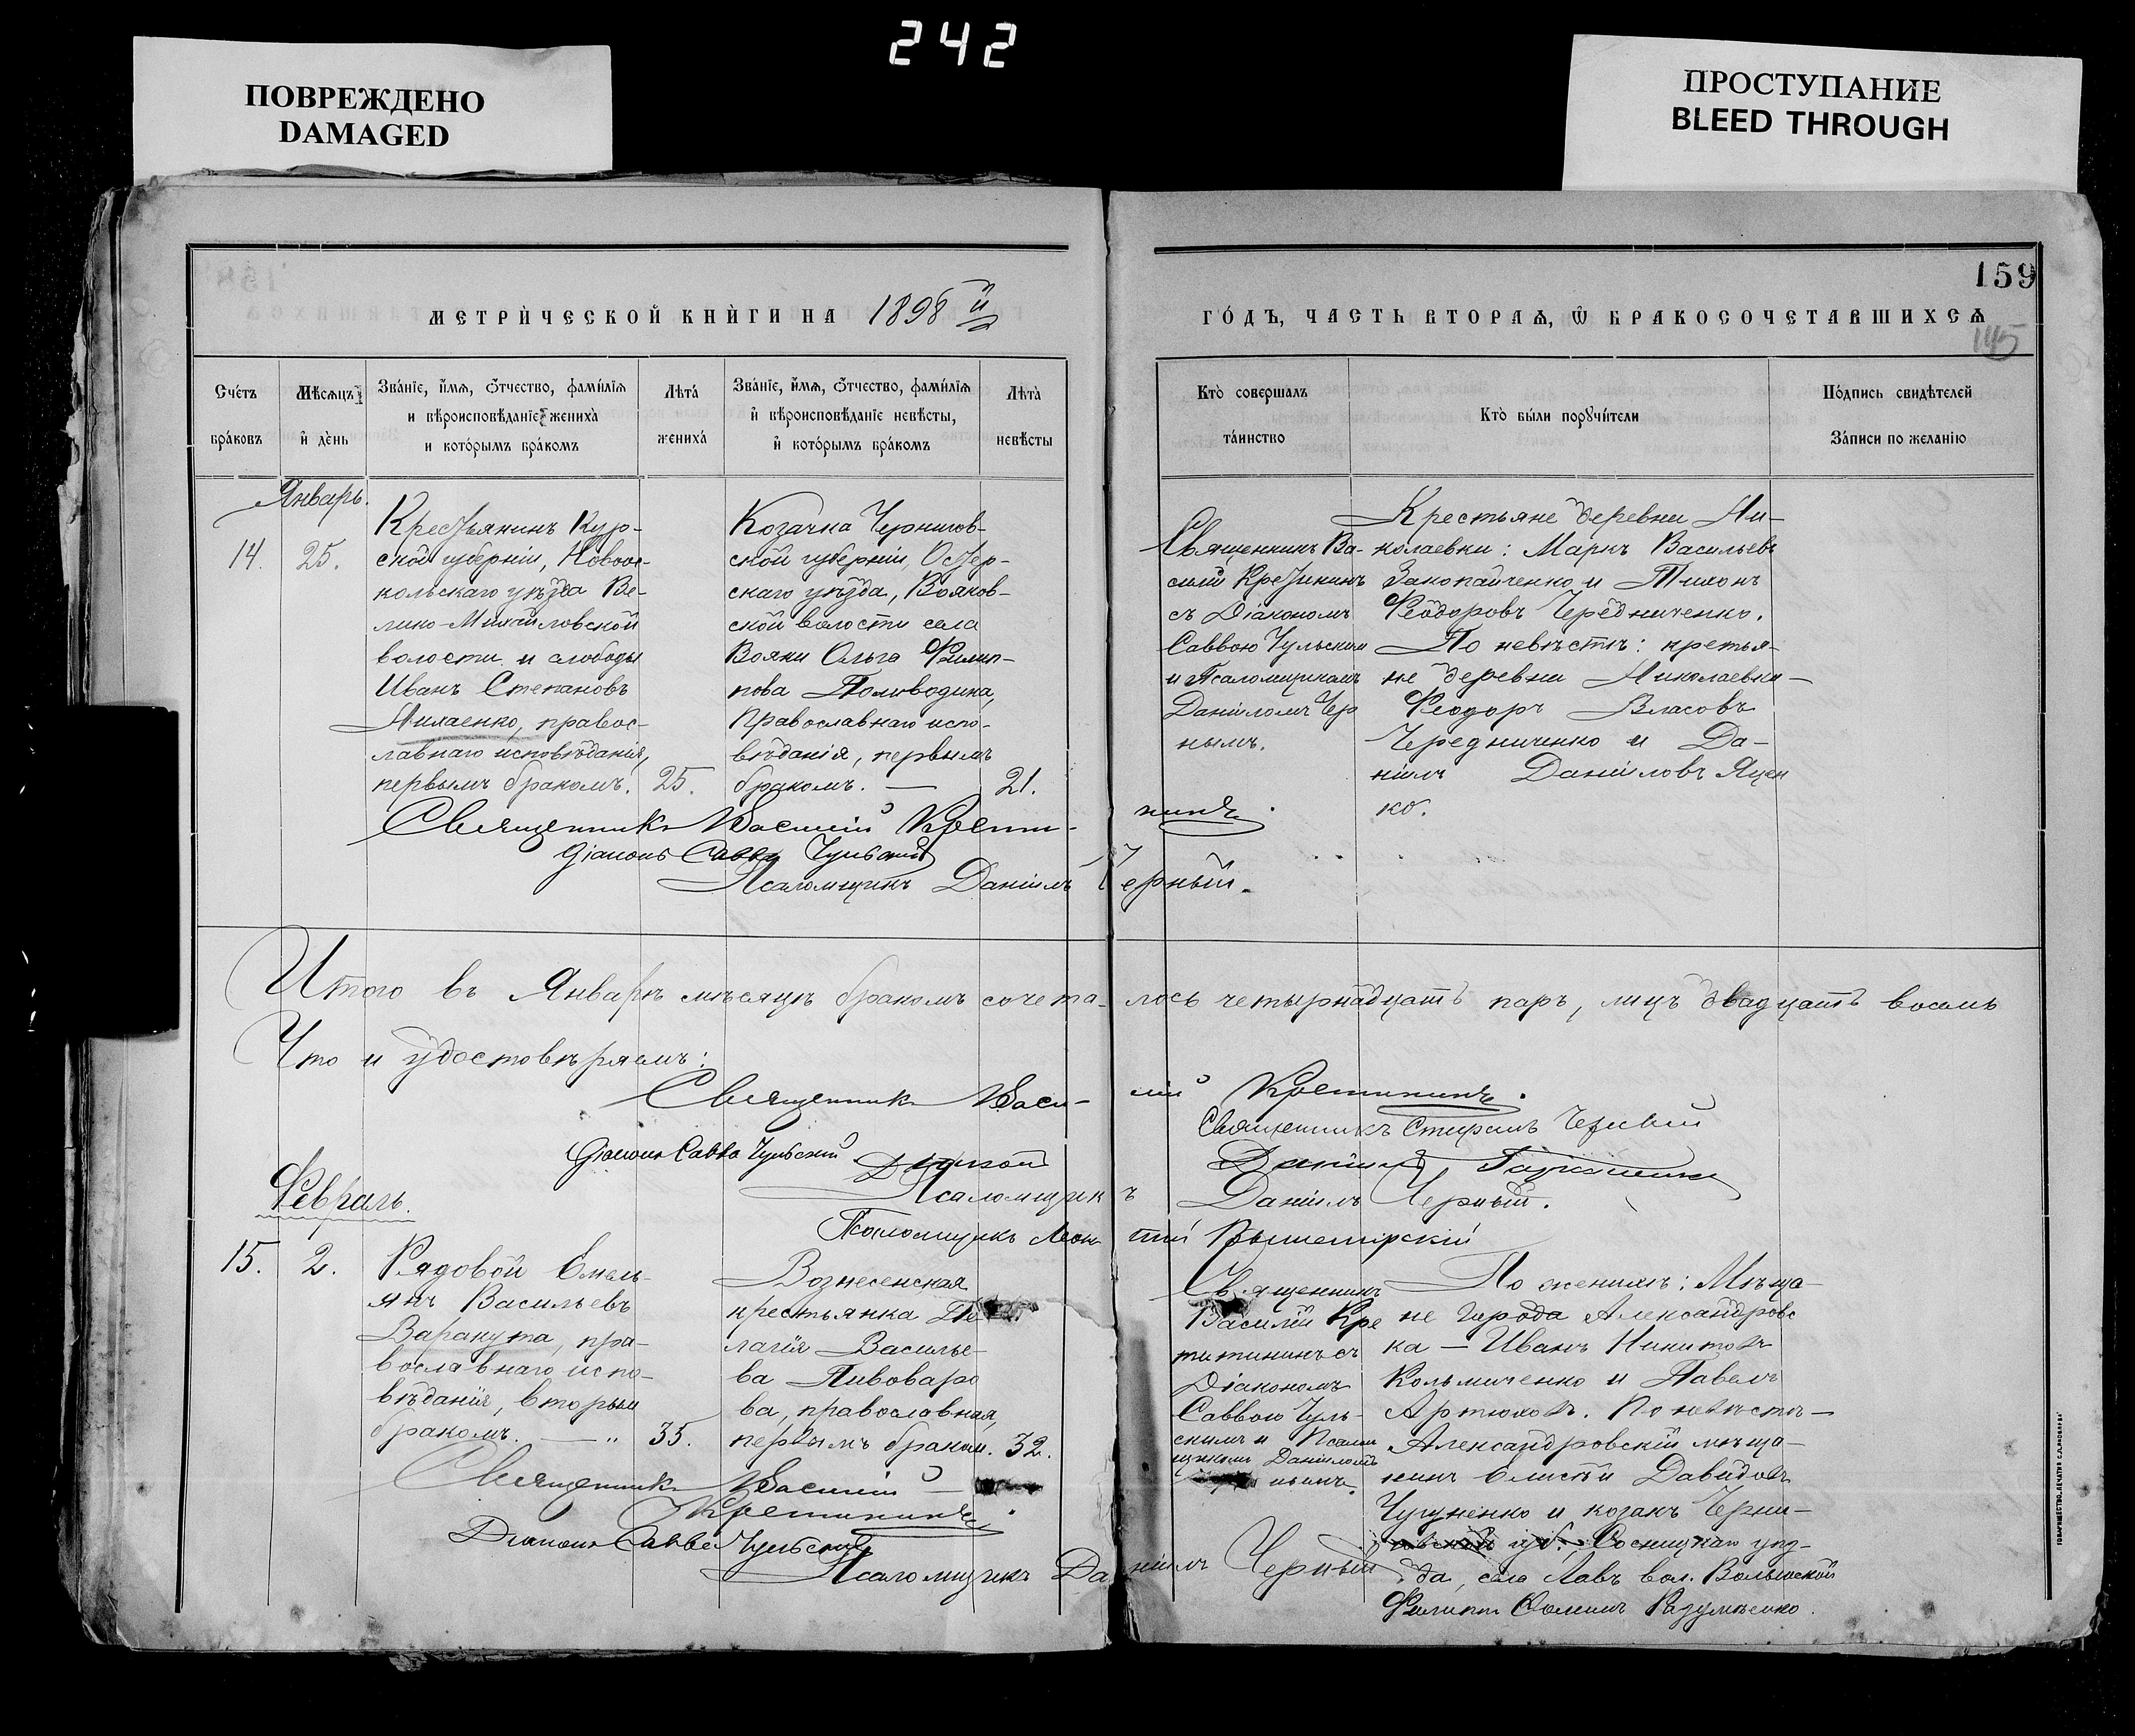 242
ПОВРЕЖДЕНО
DAMAGED
ПРОСТУПАНИЕ
BLEED THROUGH
159
МЕТРИ́ЧЕСКОЙ КНИ́ГИ НА 1898 й
ГО́ДЪ, ЧАСТЬ ВТОРАѦ, Ѿ БРАКОСОЧЕТАВШИХСѦ
145
Сче́тъ
бра́ковъ
Мѣсяцъ
и҆ де́нь
Зва́нїе, и҆́мѧ, ѻ҆́тчество, фами́лїѧ
и вѣроисповѣ́данїе жениха̀
и кото́рымъ бра́комъ
Лѣта̀
жениха̀
Зва́нїе, и҆́мѧ, ѻ҆́тчество, фами́лїѧ
и҆ вѣроисповѣ́данїе невѣ́сты,
и҆ кото́рымъ бра́комъ
Лѣта̀
невѣ́сты
Кто̀ соверша́лъ
та́инство
Кто̀ бы́ли порꙋчи́тели
По́дпись свидѣ́телей
За́писи по жела́нїю
Январь.
14. 25.
Крестьянинъ Кур-
ской губерніи, Новоос-
кольскаго уѣзда Ве-
лико-Михайловской
волости и слободы
Иванъ Степановъ
Михаенко, правос-
лавнаго исповѣданія,
первымъ бракомъ. 25.
Козачка Чернигов-
ской губерніи, Остер-
скаго уѣзда,
ской волости села
Ольга Филип-
пова Половодина,
православнаго испо-
вѣданія, первымъ
бракомъ. — 21.
Священникъ Ва-
силій Кретининъ
съ Діакономъ
Саввою Чульским
и Псаломщикомъ
Даніиломъ Чер
нымъ.
Крестьяне деревни Ни-
колаевки: Маркъ Васильевъ
Закопайченко и Тихонъ
Феодоровъ Чередниченко.
По невѣстѣ: кретья-
не деревни Николаевки —
Феодоръ Власовъ
Чередниченко и Да-
ніилъ Даніиловъ Яцен
ко.
Священникъ Василій Крети-нинъ.
Діаконъ Савва Чульскій
Псаломщикъ Даніилъ Черный.
Итого въ Январѣ мѣсяцѣ бракомъ сочета-лось четырнадцать паръ, лицъ двадцать восемь
Что и удостовѣряемъ:
Священникъ Васи-лій Кретининъ.
Священникъ
Діаконъ Савва Чульскій
Псаломщикъ Даніилъ Черный.
Псаломщикъ
Февраль.
15. 2.
Рядовой Емель-
янъ Васильевъ
Варакута, пра-
вославнаго испо-
вѣданія, вторым
бракомъ. — " 35.
Вознесенская
крестьянка Пе-
лагія Василье-
ва Пивоваро
ва, православная,
первымъ браком. 32.
Священникъ
Василій Кре
тининъ съ
Діакономъ
Саввою Чуль-
скимъ и Псалом
щикомъ Даніиломъ
нымъ.
По женихѣ: Мѣща-
не города Александровс
ка — Иванъ Никитовъ
Кольмиченко и Павелъ
Артюховъ. По невѣстѣ —
Александровскій мѣща-
нинъ Елисѣй Давидовъ
Чугуненко и козакъ Черни-
говской губ., Сосницкаго уѣз-
да, села Лавъ вол. Волынской
Филиппъ Фоминъ Разумѣенко.
Священникъ Василій
Кретининъ.
Діаконъ Савва Чульскій
Псаломщикъ Даніилъ Черный